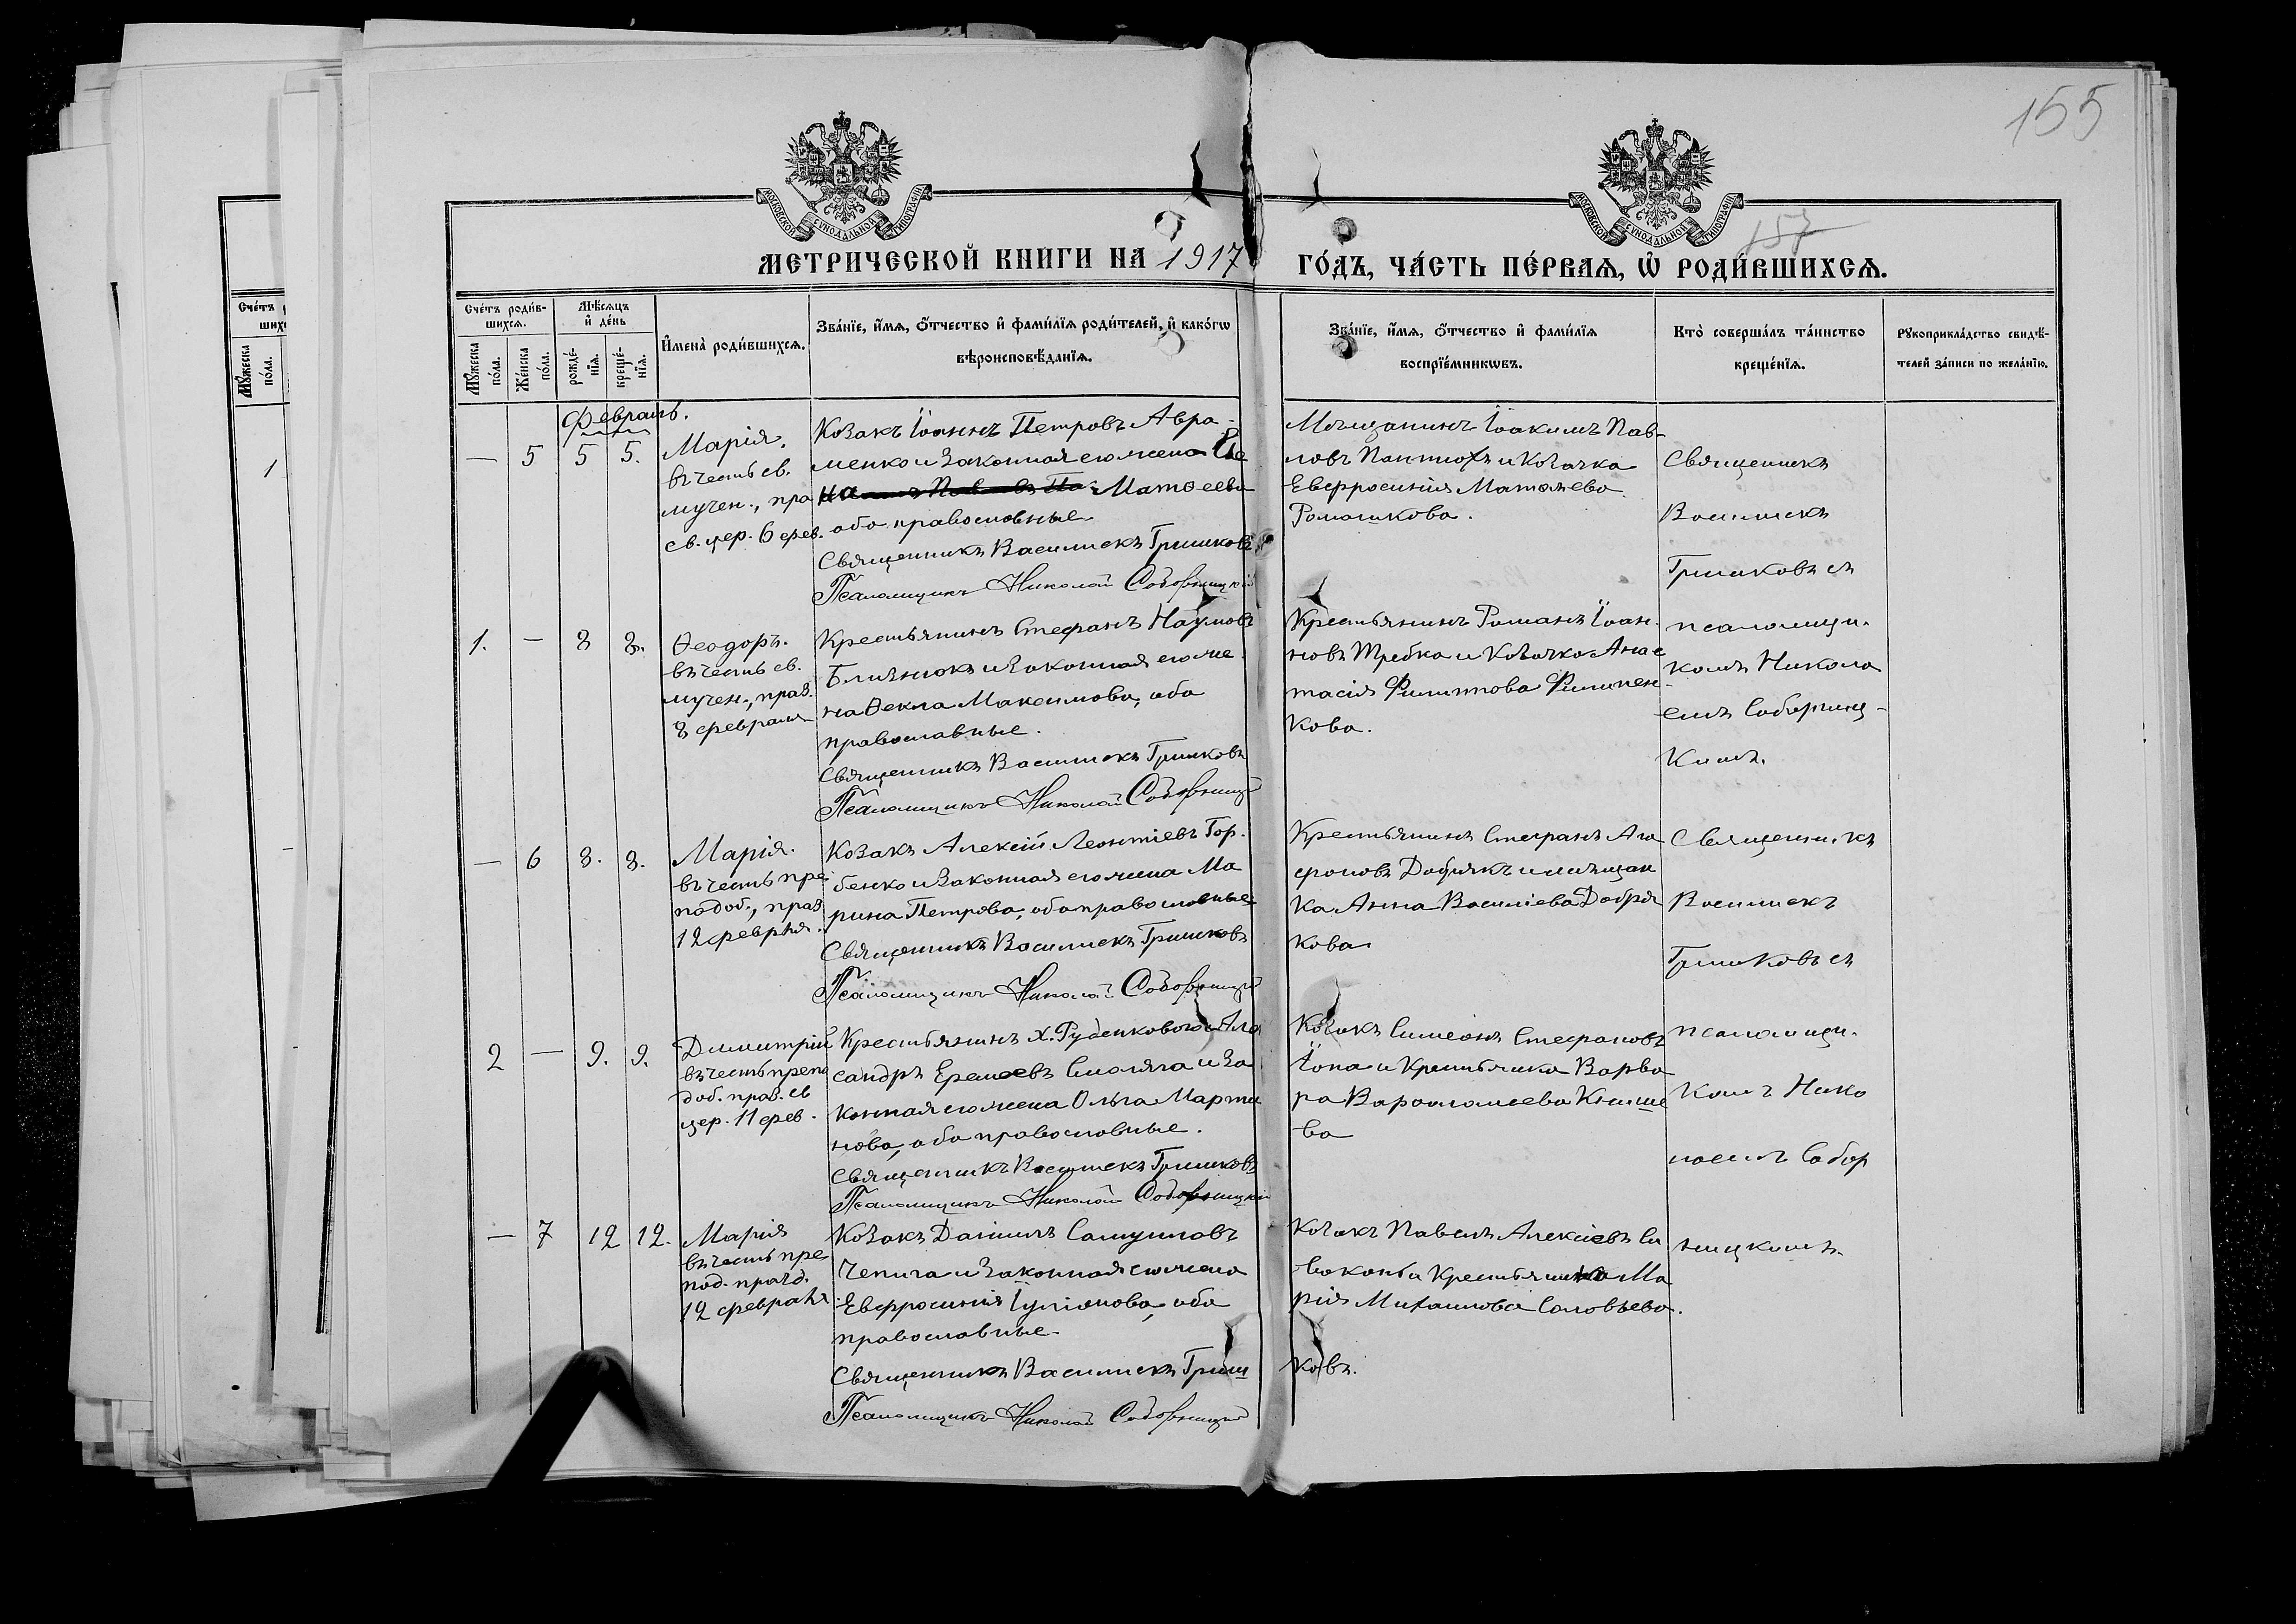 155
157
МОСКОВСКОЙ СѴНОДАЛЬНОЙ ТИПОГРАФІИ
МОСКОВСКОЙ СѴНОДАЛЬНОЙ ТИПОГРАФІИ
МЕТРИЧЕСКОЙ КНИГИ НА 1917 ГО́ДЪ, ЧА́СТЬ ПЕ́РВАѦ, Ѡ҆ РОДИ́ВШИХСѦ.
Сче́тъ роди́в-
шихсѧ.
Мѣ́сѧцъ
и҆ де́нь
Мꙋ́жеска
по́ла.
Же́нска
по́ла.
рожде́-
нїѧ.
креще́-
нїѧ.
И҆мена̀ роди́вшихсѧ.
Зва́нїе, и҆́мѧ, ѻ҆́тчество и҆ фами́лїѧ роди́телей, и҆ како́гѡ
вѣроисповѣ́данїѧ.
Зва́нїе, и҆́мѧ, ѻ҆́тчество и҆ фами́лїѧ
воспрїе́мникѡвъ.
Кто̀ соверша́лъ та́инство
креще́нїѧ.
Рꙋкоприкла́дство свидѣ́-
телей за́писи по жела́нїю.
Февраль.
— 5 5 5.
Марія,
въ честь св.
мучен., пра
св. цер. 6 фев.
Козакъ Іоаннъ Петровъ Авра-
менко и законная его жена Ев
Матѳеева
оба православные
Священникъ Василискъ Гришковъ
Псаломщикъ Николай Соборницкій
Мѣщанинъ Іоакимъ Пав-
ловъ Пантюхъ и Козачка
Евфросинія Матѳеева
Ромашкова.
Священникъ
Василискъ
Гришковъ съ
псаломщи-
комъ Никола
емъ Соборниц-
кимъ.
1. — 8 8.
Ѳеодоръ.
въ честь св.
мучен., праз.
8 февраля
Крестьянинъ Стефанъ Наумовъ
Близнюкъ и законная его же
на Ѳекла Максимова, оба
православные.
Священникъ Василискъ Гришковъ
Псаломщикъ Николай Соборницкій
Крестьянинъ Романъ Іоан-
новъ Требка и Козачка Анас
тасія Филиппова Филипен-
кова.
— 6 8. 8.
Марія.
въ честь пре
подоб., праз.
12 февраля.
Козакъ Алексій Леонтіевъ Гор-
бенко и законная его жена Ма
рина Петрова, оба православные
Священникъ Василискъ Гришковъ
Псаломщикъ Николай Соборницкій
Крестьянинъ Стефанъ Ага
фоновъ Добрякъ и мѣщан
ка Анна Василіева Добря
кова
Священникъ
Василискъ
Гришковъ съ
псаломщи-
комъ Нико
лаемъ Собор
ницкимъ.
2 — 9. 9.
Димитрій
въ честь препо
доб. праз. св
цер. 11 фев.
Крестьянинъ х. Руденкового Але
сандръ Еремеевъ Смоляга и за
конная его жена Ольга Марти
нова, оба православные.
Священникъ Василискъ Гришковъ
Псаломщикъ Николай Соборницкій
Козакъ Симеонъ Стефановъ
Іопа и Крестьянка Варва
ра Варѳоломеева Книше
ва
— 7 12 12.
Марія
въ честь пре
под. празд.
12 февраля
Козакъ Даніилъ Самуиловъ
Чепига и законная его жена
Евфросинія Іуліанова, оба
православные.
Священникъ Василискъ Гришковъ.
Псаломщикъ Николай Соборницкій
Козакъ Павелъ Алексіевъ Си
воконь и Крестьянка Ма
рія Михаилова Соловьева.
Сче́тъ
Мꙋ́жеска
по́ла.
1